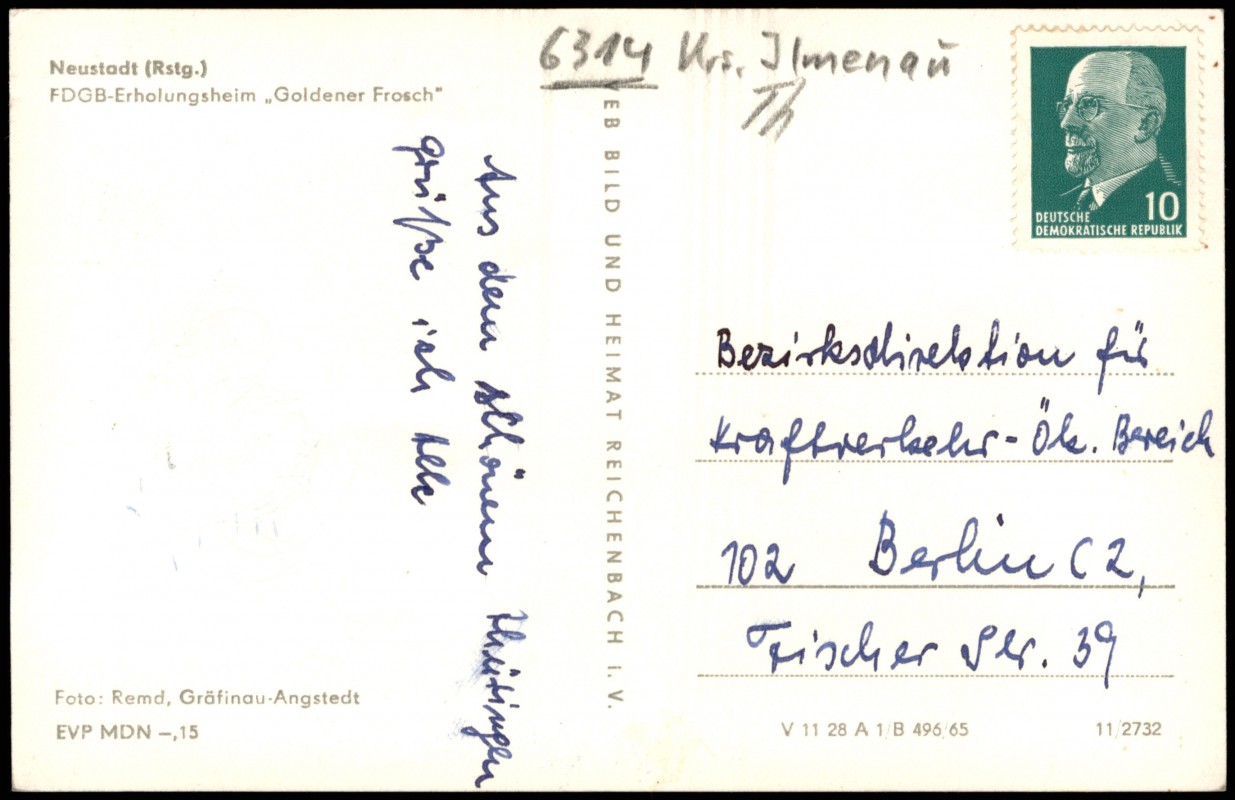 Neustadt (Rstg.)
FDGB-Erholungsheim „Goldener Frosch"
6314 Krs. Ilmenau
Th
Aus dem schönen Thüringen
grüße ich alle
VEB BILD UND HEIMAT REICHENBACH I. V.
10
DEUTSCHE
DEMOKRATISCHE REPUBLIK
Bezirksdirektion für
Kraftverkehr - Ök. Bereich
102 Berlin C 2,
Fischer Str. 39
Foto: Remd, Gräfinau-Angstedt
EVP MDN –,15
V 11 28 A 1/B 496/65
11/2732